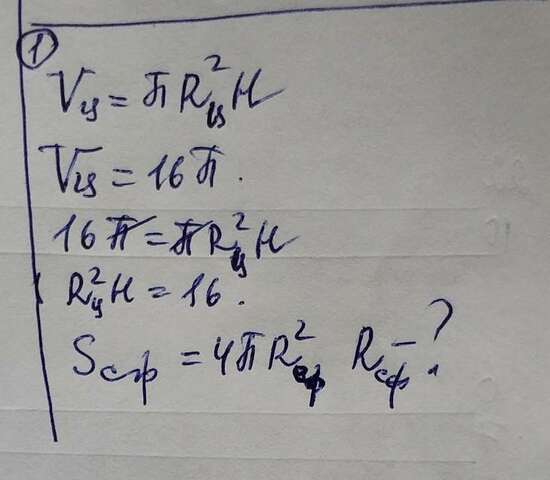 ①
Vц = πRц²H
Vц = 16π.
16π = πRц²H
Rц²H = 16.
Sсф = 4πRсф² Rсф - ?